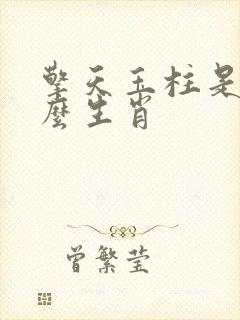 擎天玉柱是
麼生肖
曾繁莹